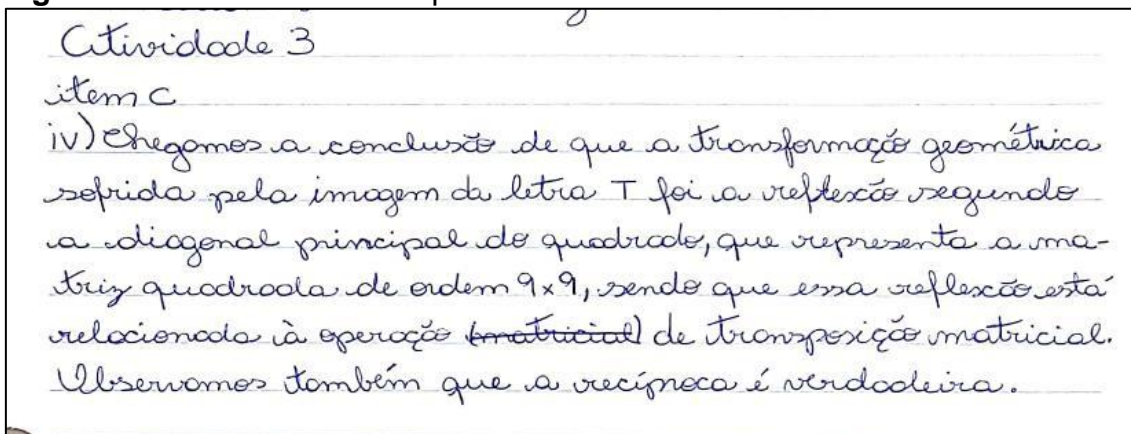 Atividade 3
item C
iv) Chegamos a conclusão de que a transformação geométrica
sofrida pela imagem da letra T foi a reflexão segundo
a diagonal principal do quadrado, que representa a ma-
triz quadrada de ordem 9x9, sendo que essa reflexão está
relacionada à operação (matricial) de transposição matricial.
Observamos também que a recíproca é verdadeira.